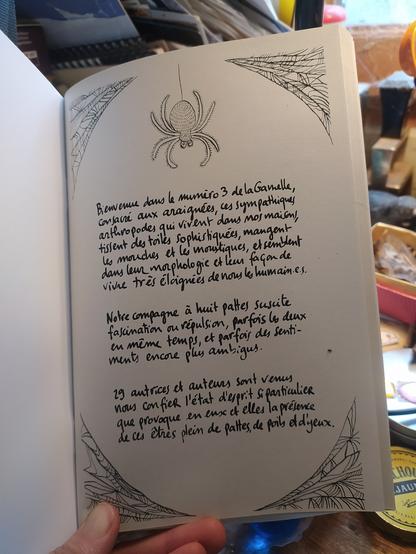 Bienvenue dans le numéro 3 de la Gamelle,
consacré aux araignées, ces sympathiques
arthropodes qui vivent dans nos maisons,
tissent des toiles sophistiquées, mangent
les mouches et les moustiques, et semblent
dans leur morphologie et leur façon de
vivre très éloignées de nous les humain.e.s.
Notre compagne à huit pattes suscite
fascination ou répulsion, parfois les deux
en même temps, et parfois des senti-
ments encore plus ambigus.
29 autrices et auteurs sont venus
nous confier l'état d'esprit si particulier
que provoque en eux et elles la présence
de ces êtres plein de pattes, de poils et d'yeux.